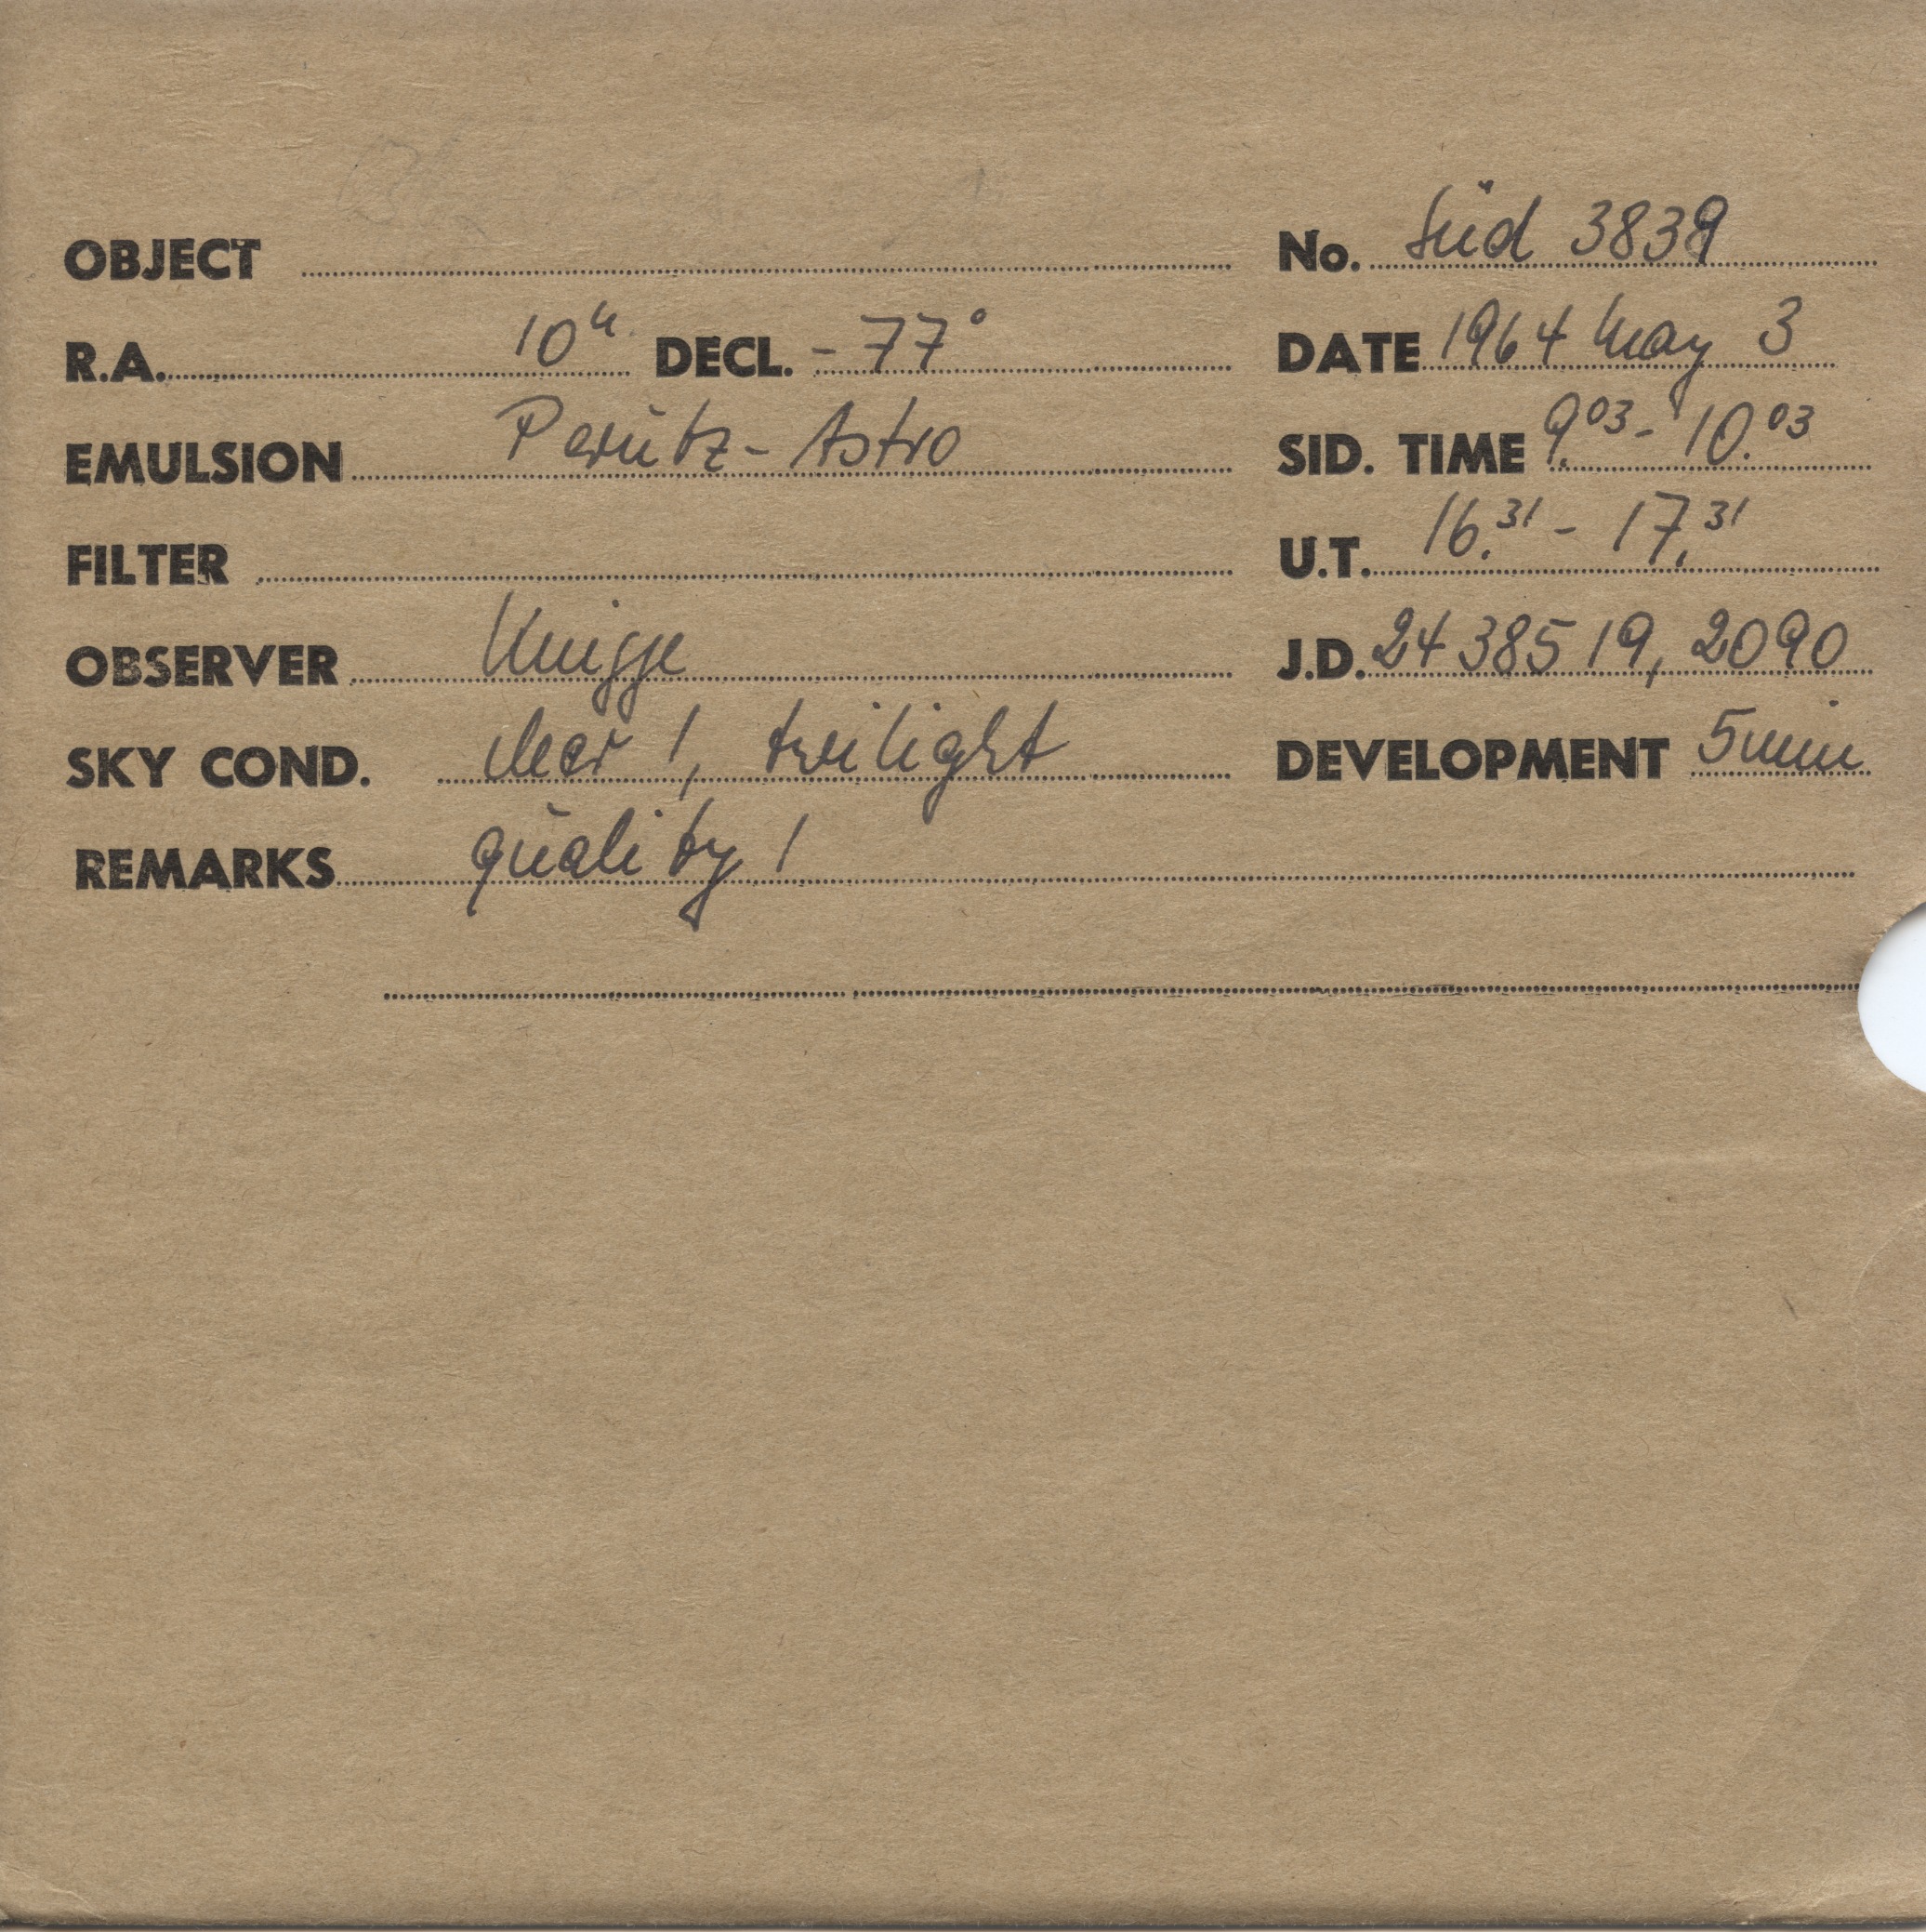 OBJECT
No. Süd 3839
R.A. 10h DECL. -77°
DATE 1964 May 3
EMULSION Perutz-Astro
SID. TIME 9.03 - 10.03
FILTER
U.T. 16.31 - 17.31
OBSERVER Knigge
J.D. 2438519,2090
SKY COND. clear 1, twilight
DEVELOPMENT 5 min
REMARKS quality 1